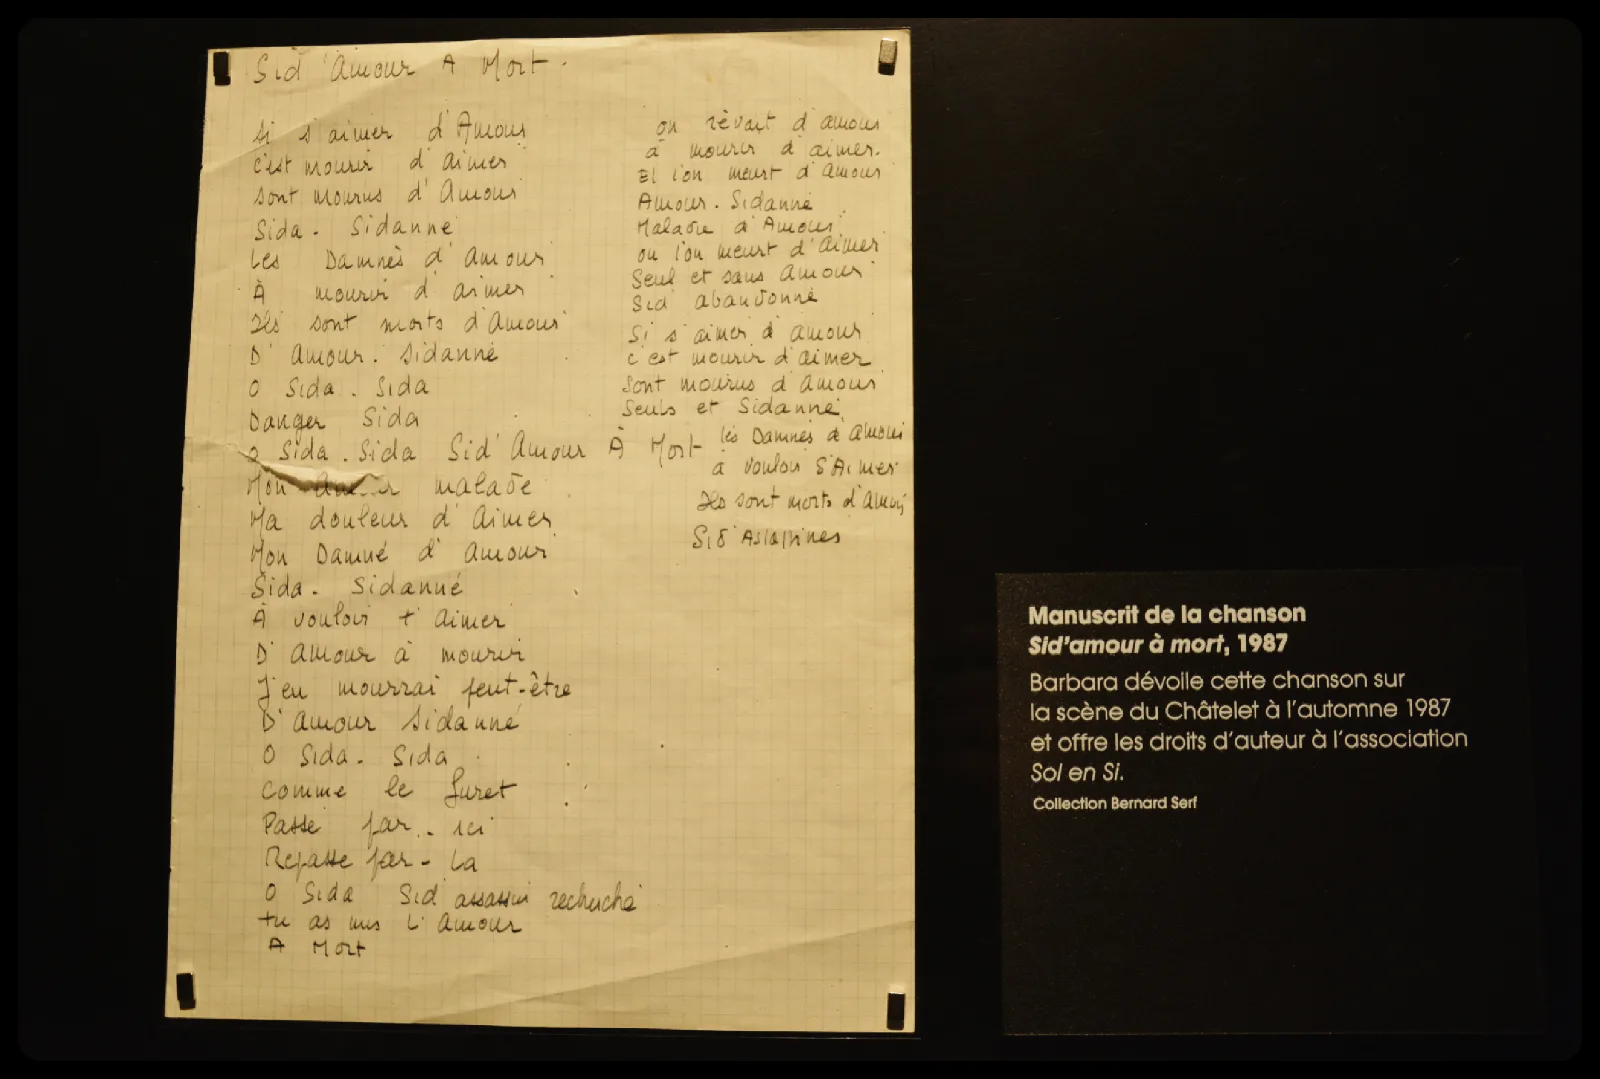 Sid'Amour A Mort.
Si s'aimer d'Amour
c'est mourir d'aimer
Sont mourus d'Amour
Sida. Sidanné
Les Damnés d'amour
À mourir d'aimer
Ils sont morts d'Amour
D'Amour. Sidanné
O Sida. Sida
Danger Sida
O Sida. Sida Sid'Amour À Mort
Mon malade
Ma douleur d'Aimer
Mon Damné d'Amour
Sida. Sidanné
À vouloir t'aimer
D'amour à mourir
J'en mourrai peut-être
D'amour Sidanné
O Sida. Sida
Comme le furet
Passe par-ici
Repasse par-La
O Sida Sid'assassin recherché
tu as mis L'Amour
A Mort
on rêvait d'amour
à mourir d'aimer.
Et l'on meurt d'Amour
Amour. Sidanné
Maladie d'Amour
ou l'on meurt d'Aimer
Seul et sans Amour
Sid'abandonné
Si s'aimer d'amour
c'est mourir d'aimer
Sont mourus d'Amour
Seuls et Sidanné
les Damnés d'amour
à vouloir S'Aimer
Ils sont morts d'Amour
Manuscrit de la chanson
Sid'amour à mort, 1987
Barbara dévoile cette chanson sur
la scène du Châtelet à l'automne 1987
et offre les droits d'auteur à l'association
Sol en Si.
Collection Bernard Serf